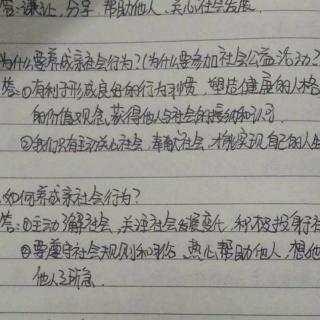 答:谦让,分享,帮助他人,关心社会发展.
为什么要养成亲社会行为?(为什么要参加社会公益活动?
答:①有利于形成良好的行为习惯,塑造健康的人格
的价值观念,获得他人与社会的接纳和认同.
②我们只有主动关心社会,奉献社会,才能实现自己的人生
如何养成亲社会行为?
答:①主动了解社会,关注社会发展变化,积极投身于社
②要遵守社会规则和习俗,热心帮助他人,想他
他人之所急.